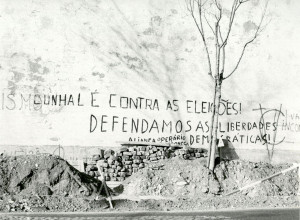 CUNHAL É CONTRA AS ELEIÇÕES!
DEFENDAMOS AS LIBERDADES
DEMOCRÁTICAS!
ALIANÇA OPERÁRIO